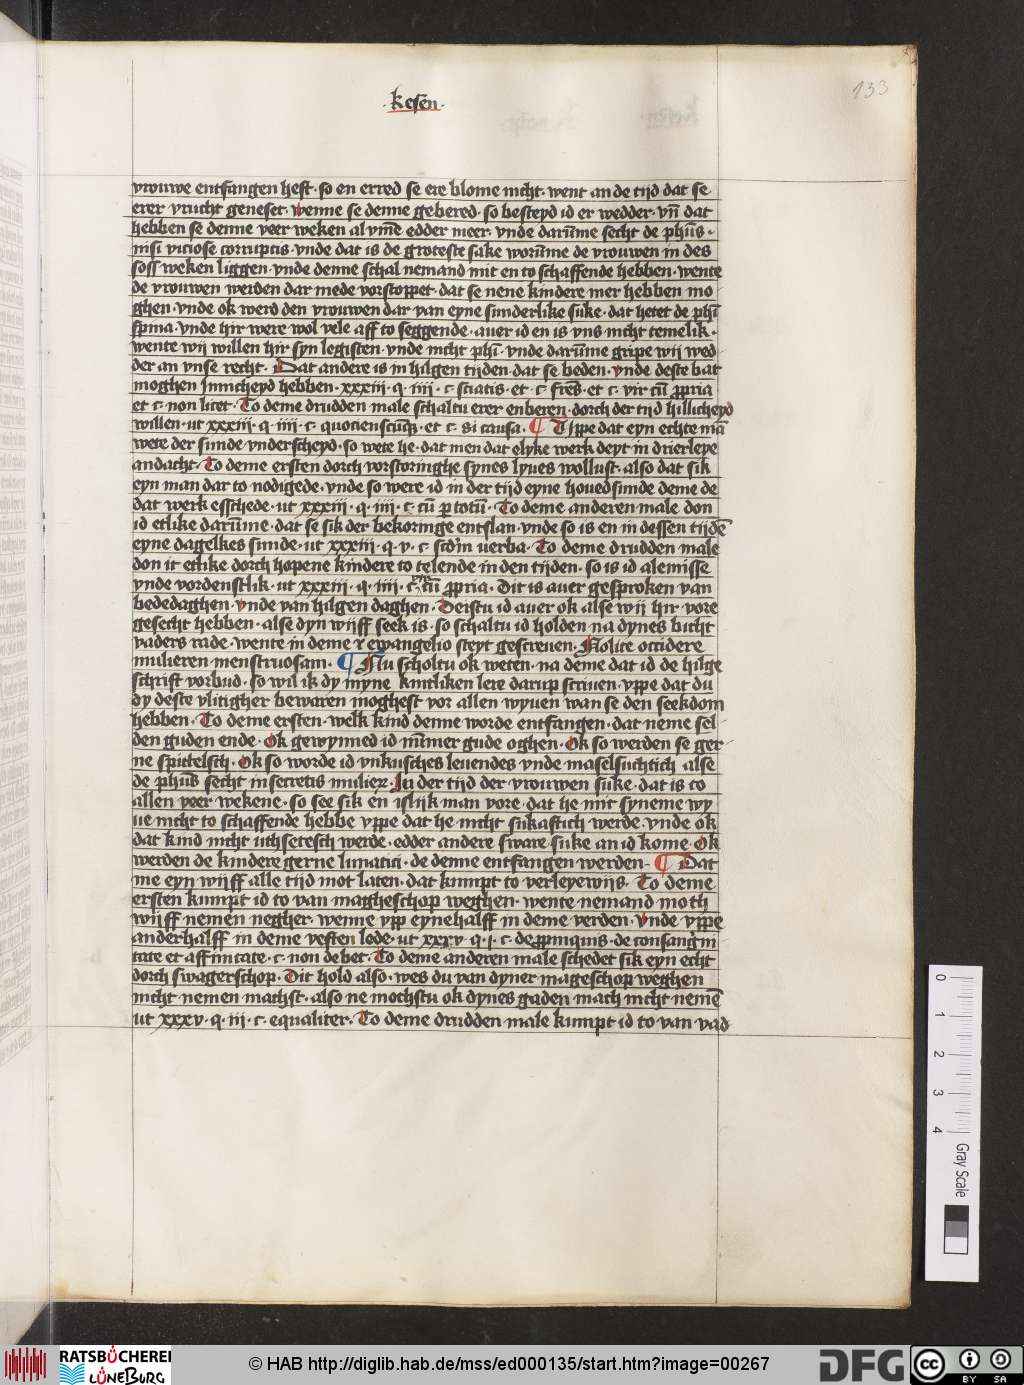 133
· kesen ·
vrouwe entfangen heft · so en erred se ere blome nicht · went an de tijd dat se
erer vrucht geneset · wenne se denne gebered · so besteyd id er wedder · vn̄ dat
hebben se denne veer weken al vm̄e edder meer · vnde darum̄e secht de ph̄us ·
nisi viciose corruptis · vnde dat is de groteste sake worum̄e de vrouwen in des
soss weken liggen · vnde denne schal nemand mit en to schaffende hebben · wente
de vrouwen werden dar mede vorstoppet · dat se nene kindere mer hebben mo
ghen · vnde ok werd den vrouwen dar van eyne sunderlike suke · dat hetet de ph̄i
spina · vnde hir were wol vele aff to seggende · auer id en is vns nicht temelik ·
wente wij willen hir syn legisten · vnde nicht ph̄i · vnde darum̄e gripe wij wed
der an vnse recht · Dat andere is in hilgen tijden · dat se beden · vnde deste bat
moghen Innicheyd hebben · xxxiii · q · iiii · c · sciatis · et · c · fr̄es · et · c · vir cū ppria
et · c · non licet · To deme drudden male schaltu erer enberen · dorch der tijd hillicheyd
willen · ut xxxiii · q · iiii · c · quotienscūq · et · c · si causa · ¶ Uppe dat eyn echte mā
wete der sunde vnderscheyd · so wete he · dat men dat elyke werk deyt in drierleye
andacht · To deme ersten dorch vorstoringhe synes lyues wollust · also dat sik
eyn man dar to nodigede · vnde so were id in der tijd eyne houedsunde deme de
dat werk esschede · ut xxxiii · q · iiii · c · cū p totū · To deme anderen male don
id etlike darum̄e · dat se sik der bekoringe entslan · vnde so is en in dessen tijdē
eyne dagelkes sunde · ut xxxiii · q · v · c · scd'm uerba · To deme drudden male
don it etlike dorch hopene kindere to telende in den tijden · so is id alemisse
vnde vordenstlik · ut xxxiii · q · iiii · c · vir cū ppria · Dit is auer gesproken van
bededaghen · vnde van hilgen daghen · Deistu id auer ok alse wij hir vore
gesecht hebben · alse dyn wijff seek is · so schaltu id holden na dynes bicht
vaders rade · wente in deme ewangelio steyt gescreuen · Nolite occidere
mulieren menstruosam · ¶ Nu scholtu ok weten · na deme dat id de hilge
schrift vorbud · so wil ik dy myne kintliken lere darup scriuen · vppe dat du
dy deste vlitigher bewaren moghest vor allen wyuen wan se den seekdom
hebben · To deme ersten · welk kind denne worde entfangen · dat neme sel
den guden ende · Ok gewynned id nūmer gude oghen · Ok so werden se ger
ne spittelsch · Ok so worde id vnkuisches leuendes vnde maselsuchtich alse
de ph̄us secht in secretis mulieꝝ · In der tijd der vrouwen suke · dat is to
allen veer wekene · so see sik en islijk man vore · dat he mit syneme wy
ue nicht to schaffende hebbe vppe dat he nicht sukaftich werde · vnde ok
dat kind nicht uthsetesch werde · edder andere sware suke an id kome · Ok
werden de kindere gerne lunatici · de denne entfangen werden · ¶ Dat
me eyn wijff alle tijd mot laten · dat kumpt to verleyewijs · To deme
ersten kumpt id to van magheschop weghen · wente nemand moth
wijff nemen negher · wenne vpp eynehalff in deme verden · vnde vppe
anderhalff in deme vesten lede · ut xxxv · q · j · c · de ppinquis · de consang'ni
tate et affinitate · c · non debet · To deme anderen male schedet sik eyn echt
dorch swagerschop · Dit hold also · wes du van dyner mageschop weghen
nicht nemen machst · also ne mochstu ok dynes gaden mach nicht nemē
ut xxxv · q · iii · c · equaliter · To deme drudden male kumpt id to van vad
0 1 2 3 4
Gray Scale
RATSBÜCHEREI
LÜNEBURG
© HAB http://diglib.hab.de/mss/ed000135/start.htm?image=00267
DFG
cc
BY SA